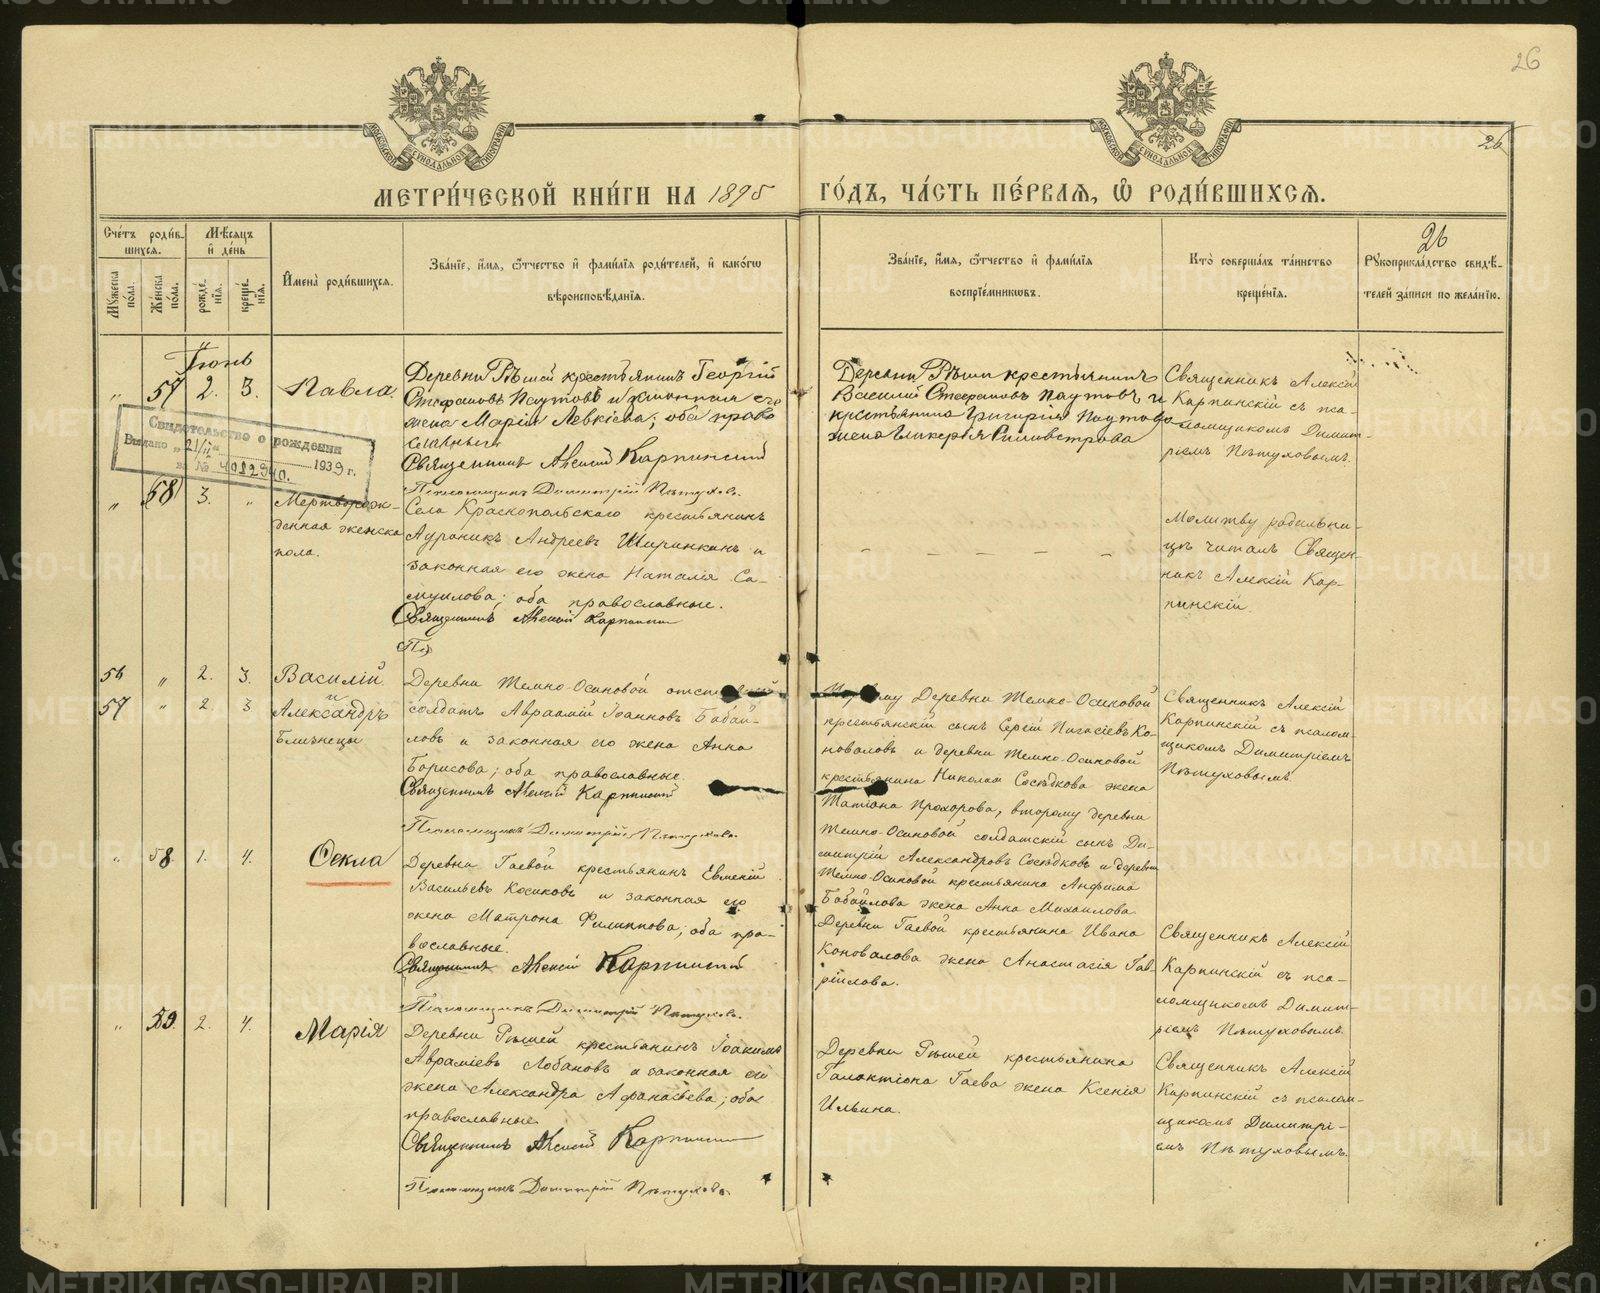 26
26
МОСКОВСКОЙ СѴНОДАЛЬНОЙ ТИПОГРАФІИ
МОСКОВСКОЙ СѴНОДАЛЬНОЙ ТИПОГРАФІИ
МЕТРИ́ЧЕСКОЙ КНИ́ГИ НА 1895 ГО́ДЪ, ЧА́СТЬ ПЕ́РВАЯ, Ѡ РОДИ́ВШИХСЯ.
Сче́тъ роди́в-
шихся.
Мѣ́сяцъ
и де́нь
Му́жеска по́ла.
Же́нска по́ла.
рожде́нїя.
креще́нїя.
И҆мена̀ роди́вшихся.
Зва́нїе, и҆́мя, ѻ҆́тчество и҆ фами́лїя роди́телей, и҆ како́гѡ
вѣроисповѣ́данїя.
Зва́нїе, и҆́мя, ѻ҆́тчество и҆ фами́лїя
воспрїе́мникѡвъ.
Кто̀ соверша́лъ та́инство
креще́нїя.
26
Рꙋкоприкла́дство свидѣ́-
телей за́писи по жела́нїю.
Іюнь
" 57 2. 3. Павла
Деревни Рѣшей крестьянинъ Георгій
Стефановъ Паутовъ и законная его
жена Марія Левкіева; оба право
славные
Священникъ Алексій Карпинскій
Псаломщикъ Димитрій Пѣтуховъ.
Деревни Рѣшей крестьянинъ
Василій Стефановъ Паутовъ и
крестьянина Григорія Паутова
жена Гликерія Силивестрова
Священникъ Алексій
Карпинскій съ пса-
ломщикомъ Димит-
ріемъ Пѣтуховымъ.
Свидетельство о рождении
Выдано „21/II"
1939 г.
за №
" 58 3. " Мертворож-
денная женска
пола.
Села Краснопольскаго крестьянинъ
Андреевъ Ширинкинъ и
законная его жена Наталія Са-
муилова; оба православные.
Священникъ Алексій Карпинскій
Пс
– – – – –
Молитву родильни-
цѣ читалъ Священ-
никъ Алексій Кар-
пинскій.
56 " 2. 3. Василій
и
57 " 2. 3 Александръ
Близнецы
Деревни Темно-Осиновой отставной
солдатъ Авраамій Іоанновъ Бабай-
ловъ и законная его жена Анна
Борисова; оба православные.
Священникъ Алексій Карпинскій
Псаломщикъ Димитрій Пѣтуховъ.
Первому Деревни Темно-Осиновой
крестьянскій сынъ Сергій Пигасіевъ Ко-
новаловъ и деревни Темно-Осиновой
крестьянина Николая Сосѣдкова жена
Татіана Прохорова, второму деревни
Темно-Осиновой солдатскій сынъ Ди-
митрій Александровъ Сосѣдковъ и деревни
Темно-Осиновой крестьянина Анфима
Бабайлова жена Анна Михаилова
Священникъ Алексій
Карпинскій съ псалом-
щикомъ Димитріемъ
Пѣтуховымъ
" 58. 1. 4. Ѳекла
Деревни Гаевой крестьянинъ Евменій
Васильевъ Косиковъ и законная его
жена Матрона Филиппова; оба пра-
вославные.
Священникъ Алексій Карпинскій
Псаломщикъ Димитрій Пѣтуховъ.
Деревни Гаевой крестьянина Ивана
Коновалова жена Анастасія Гав-
ріилова.
Священникъ Алексій
Карпинскій съ пса-
ломщикомъ Димит-
ріемъ Пѣтуховымъ
" 59. 2. 4. Марія
Деревни Рѣшей крестьянинъ Іоакимъ
Авраміевъ Лобановъ и законная его
жена Александра Афанасьева; оба
православные
Священникъ Алексій Карпинскій
Псаломщикъ Димитрій Пѣтуховъ.
Деревни Рѣшей крестьянина
Галактіона Гаева жена Ксенія
Ильина.
Священникъ Алексій
Карпинскій съ псалом-
щикомъ Димитрі-
емъ Пѣтуховымъ.
METRIKI.GASO-URAL.RU